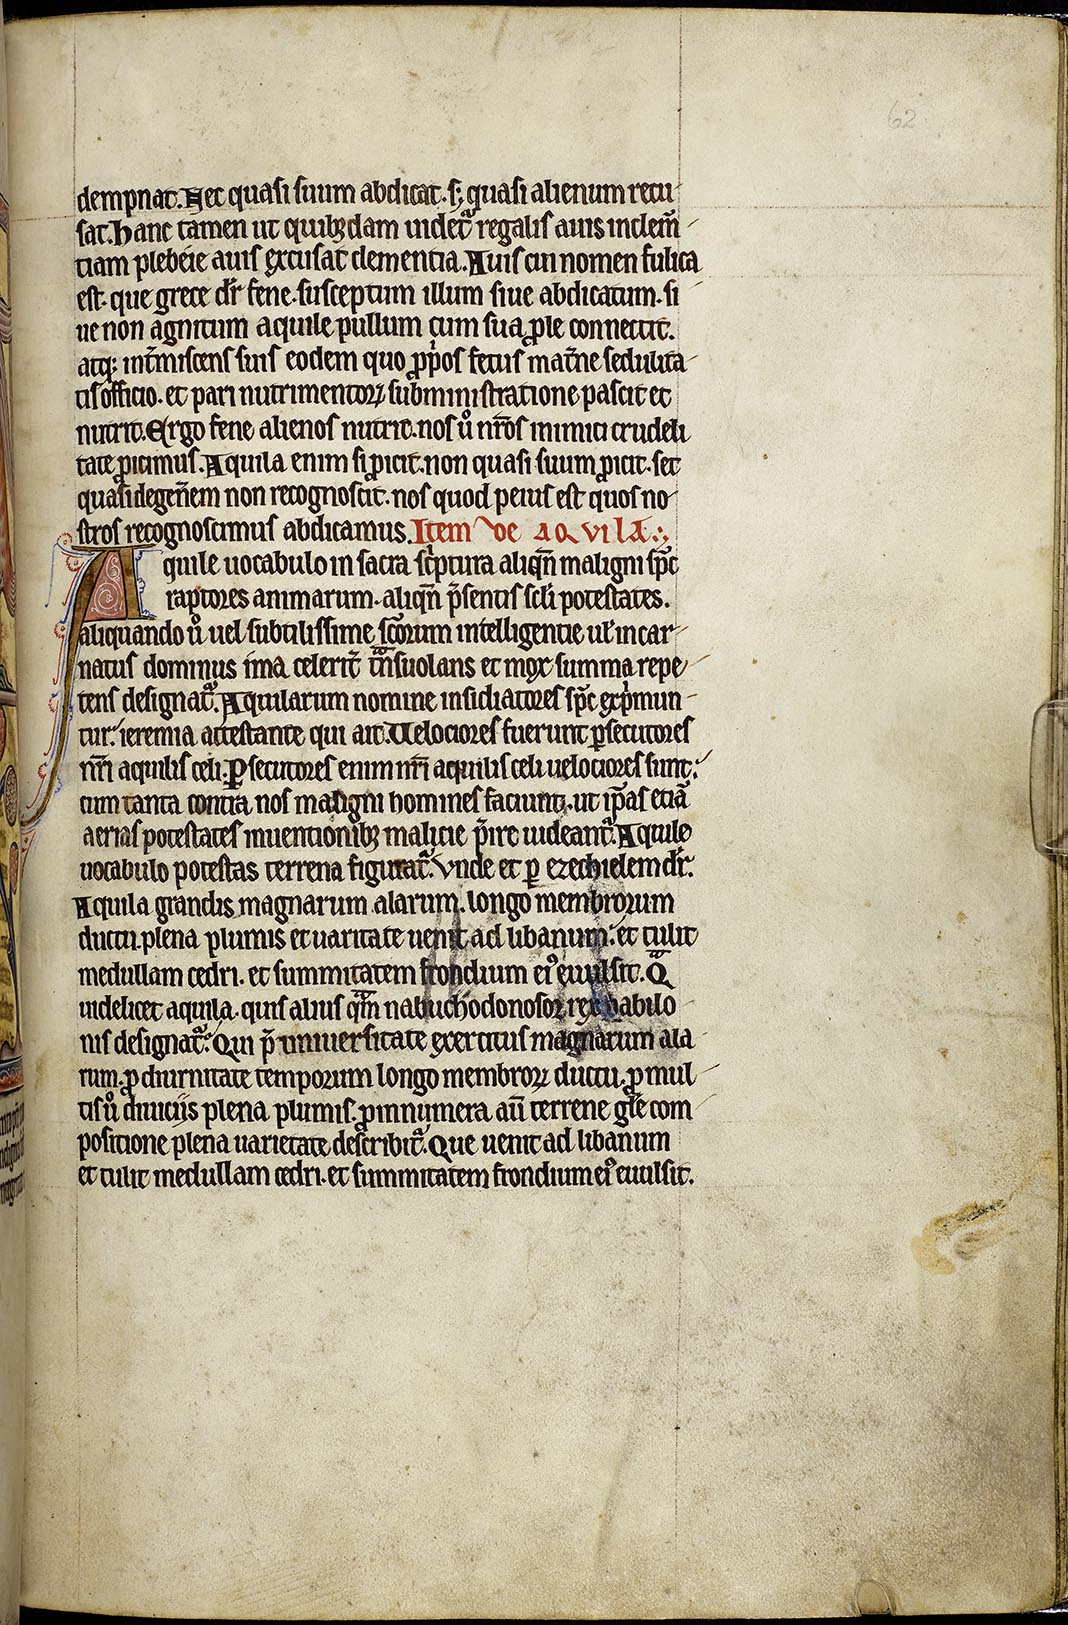 62
dempnat. Nec quasi suum abdicat. sꝫ quasi alienum recu
sat. Hanc tamen ut quibꝫdam uidetᷓ regalis auis inclem̄
tiam plebeie auis excusat clementia. Auis cui nomen fulica
est. que grece dr̄ fene. susceptum illum siue abdicatum. si
ue non agnitum aquile pullum cum sua ꝓle connectit.
atqꝫ int̄miscens suis eodem quo ꝓp̍os fetus mat̄ne sedulita
tis officio. et pari nutrimentoꝝ subministratione pascit et
nutrit. Ergo fene alienos nutrit. nos uͦ nr̄os inimici crudeli
tate ꝓicimus. Aquila enim si ꝓicit. non quasi suum ꝓicit. set
quasi degen̄em non recognoscit. nos quod peius est quos no
stros recognoscimus abdicamus. Item de aquila
Aquile uocabulo in sacra sc̍ptura aliqn̄ maligni sp̄c
raptores animarum. aliqn̄ p̄sentis sc̄li potestates.
aliquando uͦ uel subtilissime sc̄orum intelligentie ul̕ incar
natus dominus ima celerit̄ tᷓnsuolans et mox summa repe
tens designatᷓ. Aquilarum nomine insidiatores sp̄c exp̍mun
tur. ieremia attestante qui ait. Uelociores fuerunt ꝑsecutores
nr̄i aquilis celi. Ꝑsecutores enim nr̄i aquilis celi uelociores sunt.
cum tanta contra nos maligni homines faciunt. ut ip̄as etiā
aerias potestates inuentionibꝫ malicie p̄ire uideantᷓ. Aquile
uocabulo potestas terrena figuratᷓ. Vnde et ꝑ ezechielem dr̄.
Aquila grandis magnarum alarum. longo membrorum
ductu. plena plumis et uaritate uenit ad libanum. et tulit
medullam cedri. et summitatem frondium eiꝰ euulsit. Qᷓ
uidelicet aquila. quis alius qᷓm nabuchodonosor rex babilo
nis designatᷓ. Qui p̄ uniuersitate exercitus magnarum ala
rum. ꝓ diurnitate temporum longo membroꝝ ductu. ꝓ mul
tis uͦ diuiciis plena plumis. ꝓ innumera au̅ terrene gl̄e com
positione plena uarietate describitᷓ. Que uenit ad libanum
et tulit medullam cedri. et summitatem frondium eiꝰ euulsit.